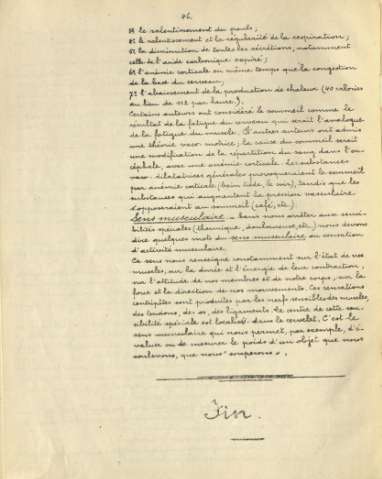 96.
3° le ralentissement du pouls ;
4° le ralentissement et la régularité de la respiration ;
5° la diminution de toutes les sécrétions, notamment
celle de l'acide carbonique expiré ;
6° l'anémie corticale en même temps que la congestion
de la base du cerveau ;
7° l'abaissement de la production de chaleur (40 calories
au lieu de 112 par heure).
Certains auteurs ont considéré le sommeil comme le
résultat de la fatigue du cerveau qui serait l'analogue
de la fatigue du muscle. D'autres auteurs ont admis
une théorie vaso-motrice ; la cause du sommeil serait
une modification de la répartition du sang dans l'en-
céphale, avec une anémie corticale. Les substances
vaso-dilatatrices générales provoqueraient le sommeil
par anémie corticale (bain tiède, le soir), tandis que les
substances qui augmentent la pression vasculaire
s'opposeraient au sommeil (café, etc.).
Sens musculaire. - Sans nous arrêter aux sensi-
bilités spéciales (thermique, douloureuse, etc.) nous devons
dire quelques mots du sens musculaire ou sensation
d'activité musculaire.
Ce sens nous renseigne constamment sur l'état de nos
muscles, sur la durée et l'énergie de leur contraction,
sur l'attitude de nos membres et de notre corps, sur la
force et la direction de nos mouvements. Ces sensations
centripètes sont produites par les nerfs sensibles des muscles,
des tendons, des os, des ligaments. Le centre de cette sen-
sibilité spéciale est localisé dans le cervelet. C'est le
sens musculaire qui nous permet, par exemple, d'é-
valuer ou de mesurer le poids d'un objet que nous
soulevons, que nous "soupesons".
Fin.